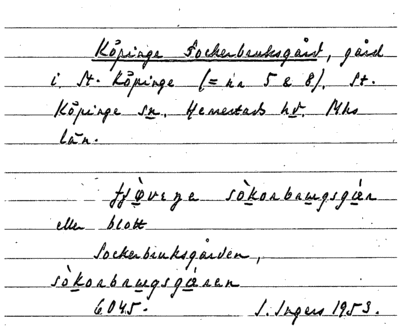 Köpinge Sockerbruksgård, gård
i St. Köpinge (= nr 5 & 8). St.
Köpinge sn. Herrestads hd. Mhs
län.
sòkorbrugsgår
eller blott
Sockerbruksgården,
sòkorbrugsgåren
6045. I. Ingers 1953.